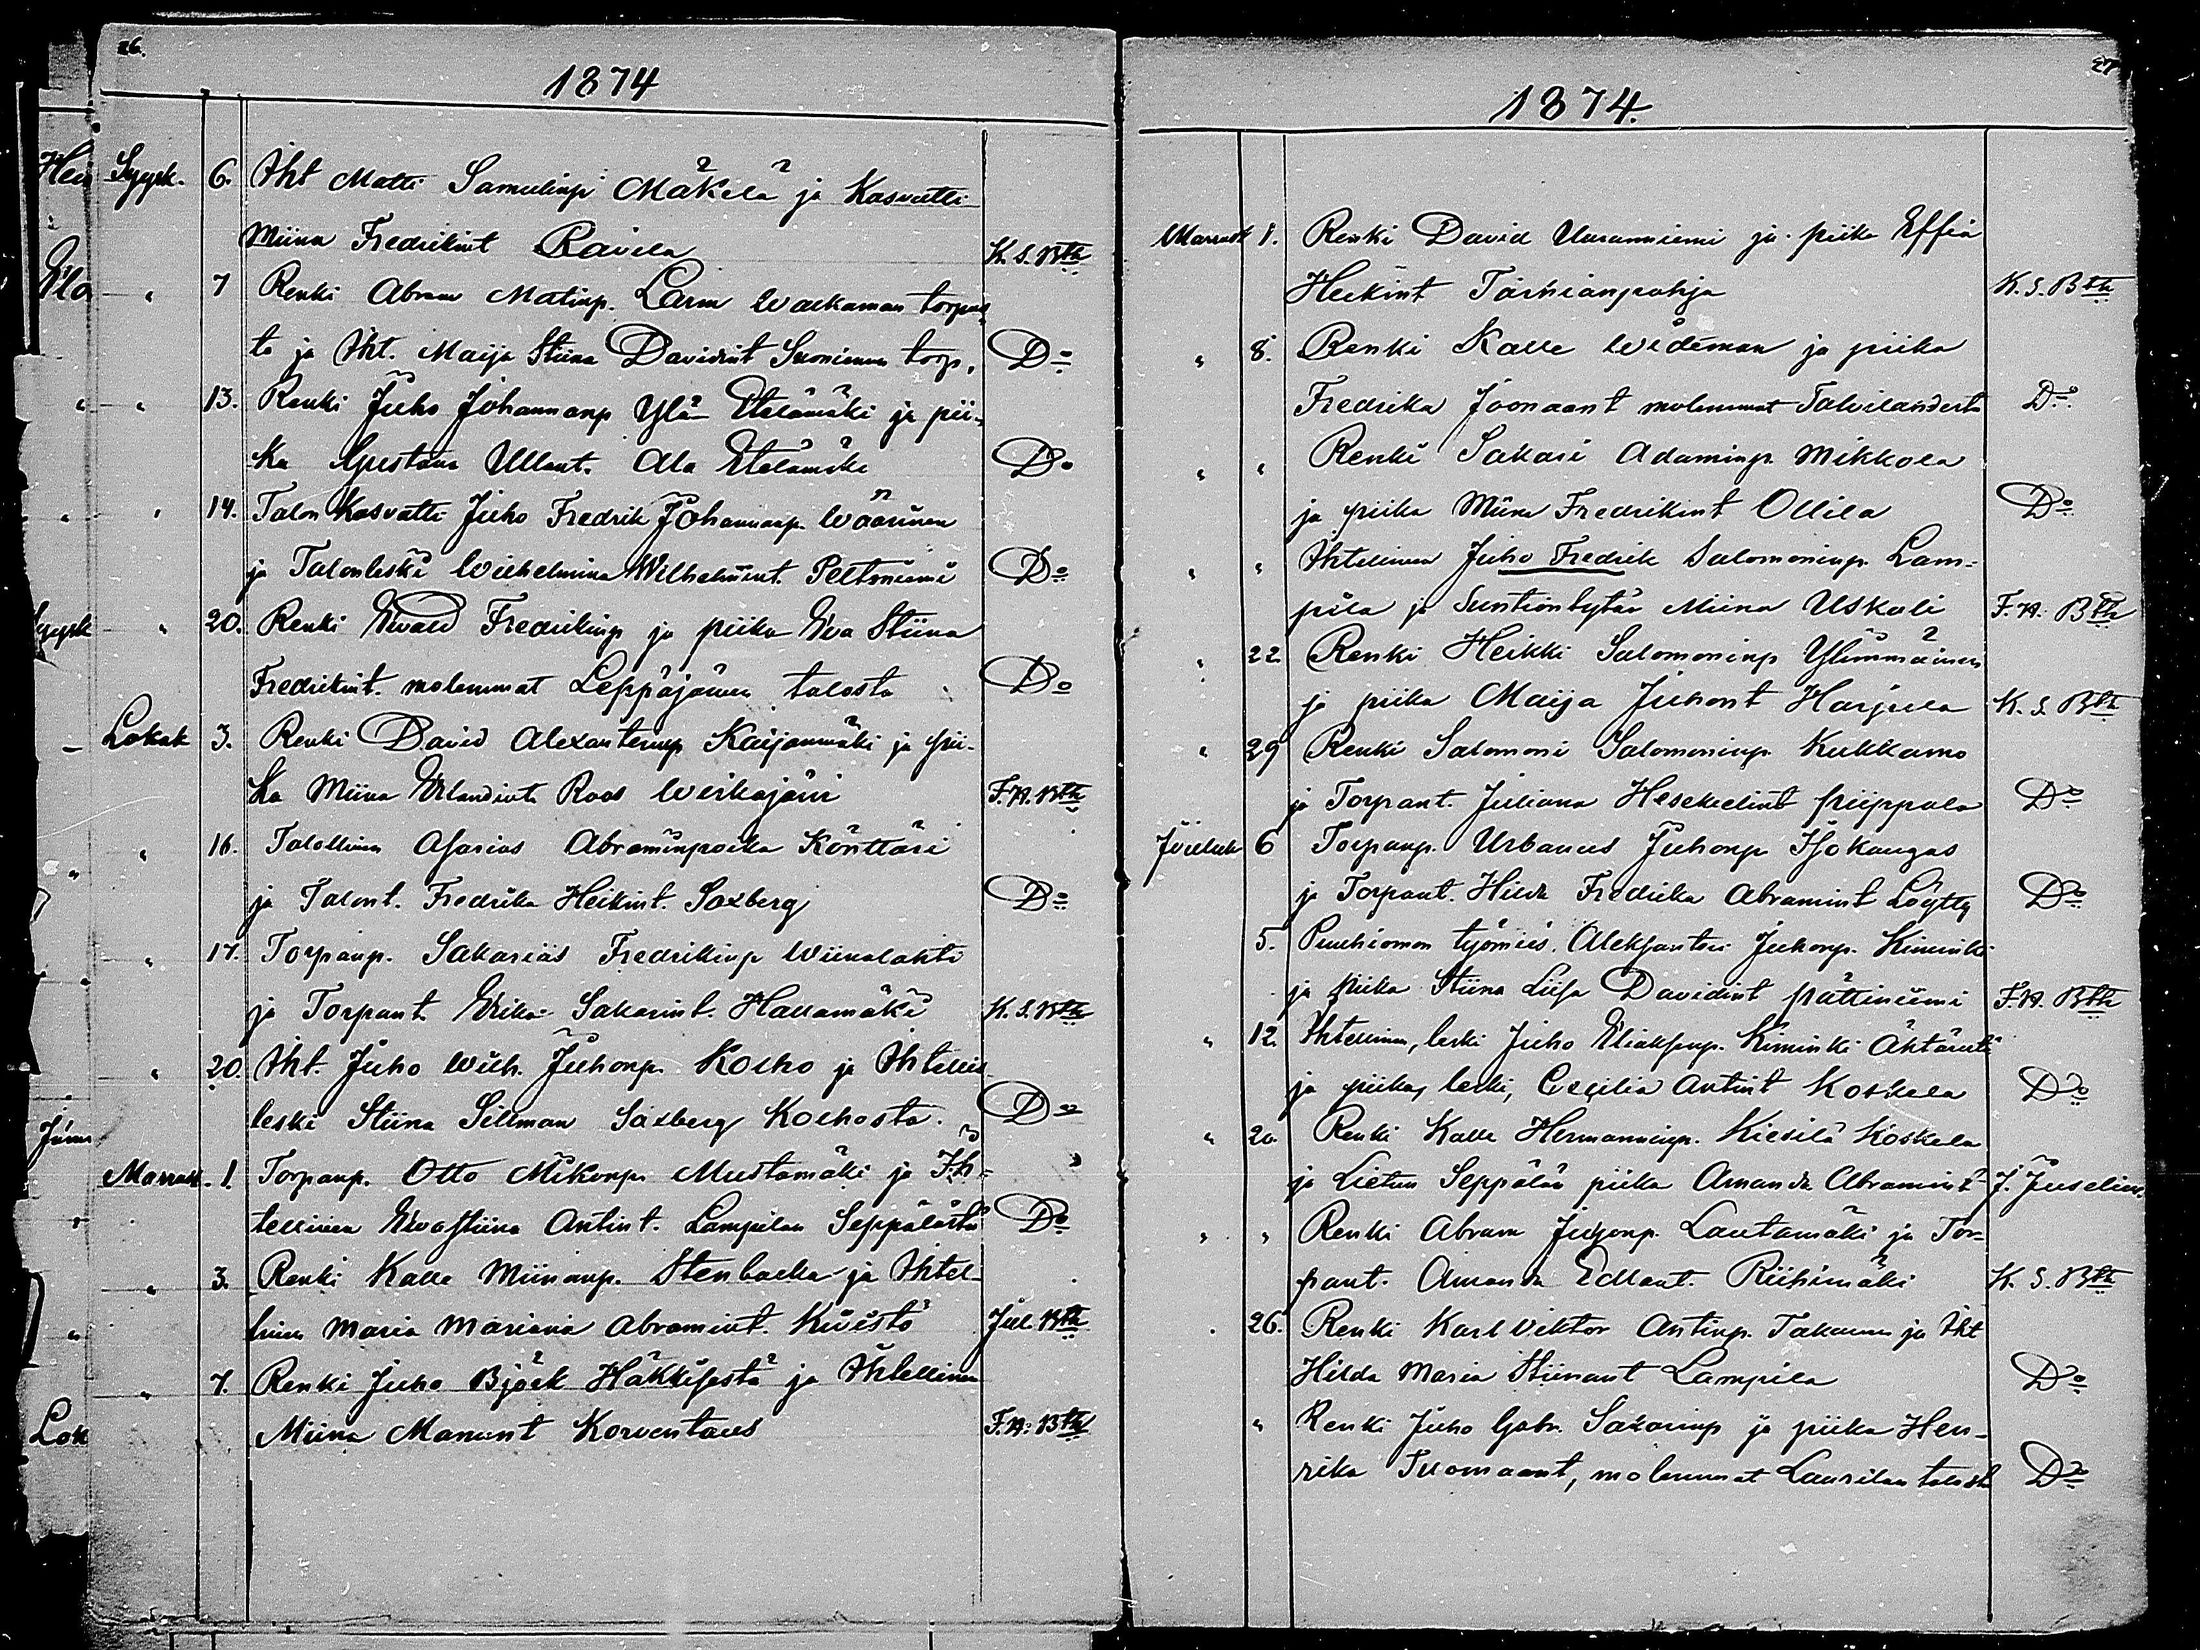 26.
1874
Syysk. 6. Iht Matti Samulinp Mäkelä ja Kasvatti
Miina Fredrikint Ravila K. S. Bth
" 7 Renki Abram Matinp. Larm Walkaman torpas
ta ja Iht. Maija Stiina Davidint Suoniemen torp. Do
" 13. Renki Juho Johannanp Ylä Etelämäki ja pii-
ka Gustava Ullant. Ala Etelämäki Do
" 14. Talon Kasvatti Juho Fredrik Johannanp. Wäärinen
ja Talonleski Wilhelmina Wilhelmint. Peltoniemi Do
" 20. Renki Ewald Fredrikinp ja piika Eva Stiina
Fredrikint. molemmat Leppäjärven talosta Do
Lokak 3. Renki David Alexanterinp Kaijanmäki ja pii-
ka Miina Erlandint. Roos Wirkajärvi F. A. Bth
" 16. Talollinen Asarias Abraminpoika Könttäri
ja Talont. Fredrika Heikint. Saxberg Do
" 17. Torpanp. Sakarias Fredrikinp Wiinalahti
ja Torpant. Erika Sakarint. Hallamäki K. S. Bth
" 20 Iht. Juho Wilh. Juhonp. Kolho ja Ihtellis
leski Stiina Sillman Saxberg Kolhosta. Do
Marrask. 1. Torpanp. Otto Mikonp. Mustamäki ja Ih-
tellinen Eva Stiina Antint. Lampilan Seppälästä Do
" 3. Renki Kalle Miinanp. Stenbacka ja Ihtel-
linen Maria Mariana Abramint. Kivistö Jul. Bth
" 7. Renki Juho Björk Häkkisestä ja Ihtellinen
Miina Manunt Korventaus F. A. Bth
27
1874.
Marrask 1. Renki David Uuranniemi ja piika Effia
Heikint Tarhianpohja K. S. Bth
" 8. Renki Kalle Wideman ja piika
Fredrika Joonaant molemmat Talvilandesta Do
" " Renki Sakari Adaminp. Mikkola
ja piika Miina Fredrikint Ollila Do
" " Ihtellinen Juho Fredrik Salomoninp. Lam-
pila ja Suntiontytär Miina Uskali F. A. Bth
" 22 Renki Heikki Salomoninp Ylimmäinen
ja piika Maija Juhont Harjula K. S. Bth
" 29 Renki Salomoni Salomoninp Kukkamo
ja Torpant. Juliana Hesekielint Piippola Do
Jouluk 6 Torpanp. Urbanus Juhonp Isokangas
ja Torpant. Hilda Fredrika Abramint Löytty Do
5. Puuhiomon työmies. Aleksanteri Juhonp. Kiminki
ja piika Stiina Liisa Davidint Pättiniemi F. A. Bth
" 12. Ihtellinen, leski Juho Eliaksenp. Kiminki Ähtäristä
ja piika, leski, Cecilia Antint Koskela Do
" 20 Renki Kalle Hermanninp. Kiesilä Koskela
ja Lietun Seppälän piika Amanda Abramint J. Juselius.
" " Renki Abram Juhonp. Lautamäki ja Tor-
pant. Amanda Edlant. Riihimäki K. S. Bth
" 26. Renki Karl Viktor Antinp. Takanen ja Iht
Hilda Maria Stiinant Lampila Do
" Renki Juho Gabr. Sakarinp ja piika Hen-
rika Tuomaant, molemmat Laurilan talosta Do
Hei
Elo
Syysk
Lok